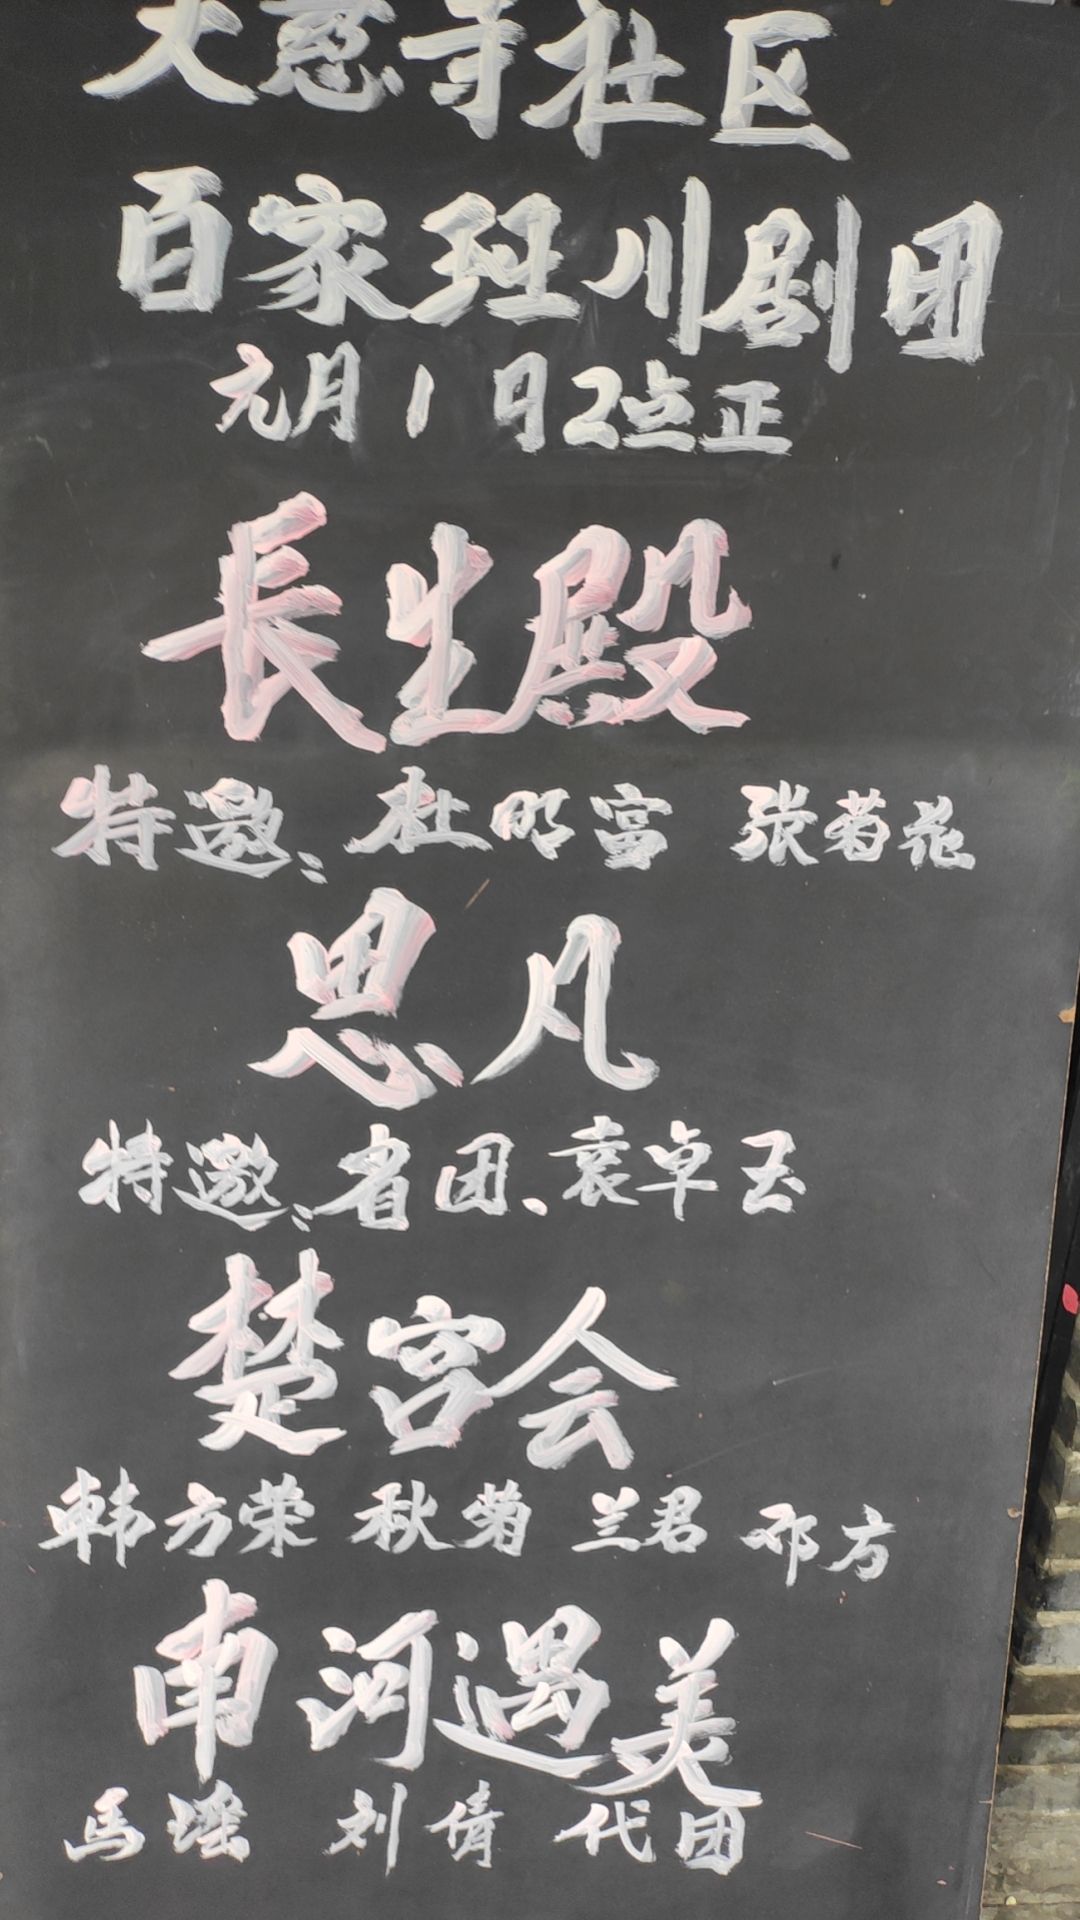 大慈寺社区
百家班川剧团
元月1日2点正
長生殿
特邀：杜明富 张菊花
思凡
特邀：省团、袁卓玉
楚宫会
韩方荣 秋菊 兰君 邓方
南河遇美
馬瑶 刘倩 代团